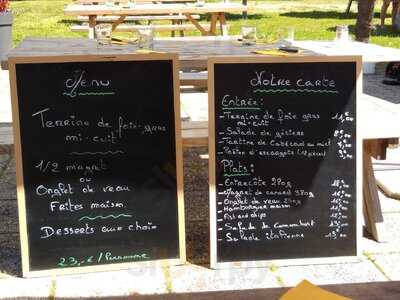 Menu
Terrine de foie gras
mi-cuit
1/2 magret
ou
Onglet de veau
Frites maison
Desserts aux choix
23,-€ / Personne
Notre carte
Entrée:
-Terrine de foie gras
mi-cuit
-Salade de gésiers
-Tartine de Cabécoud au miel
d'escargots
Plats:
-Entrecote 280g
-Magret de canard 380g
-Onglet de veau
-Hamburger maison
-Fish and chips
-Salade de Camembert
-Salade italienne